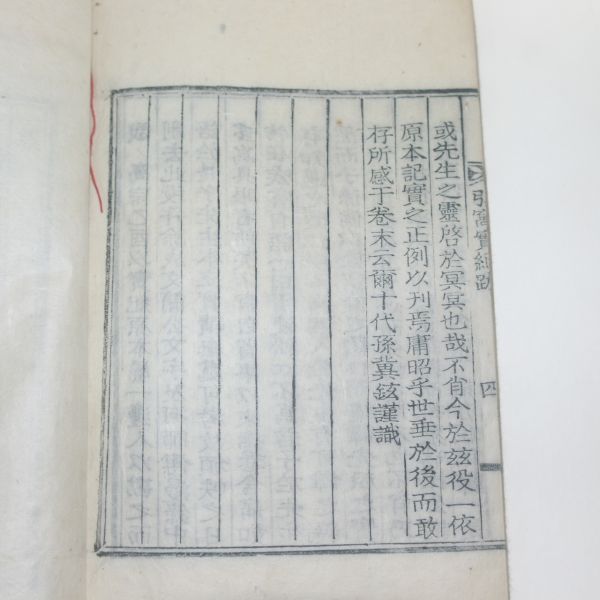 或先生之靈啓於冥冥也哉不肖今於玆役一依
原本記實之正例以刊焉庸昭乎世垂於後而敢
存所感于卷末云爾十代孫冀鉉謹識
窩實紀跋
四